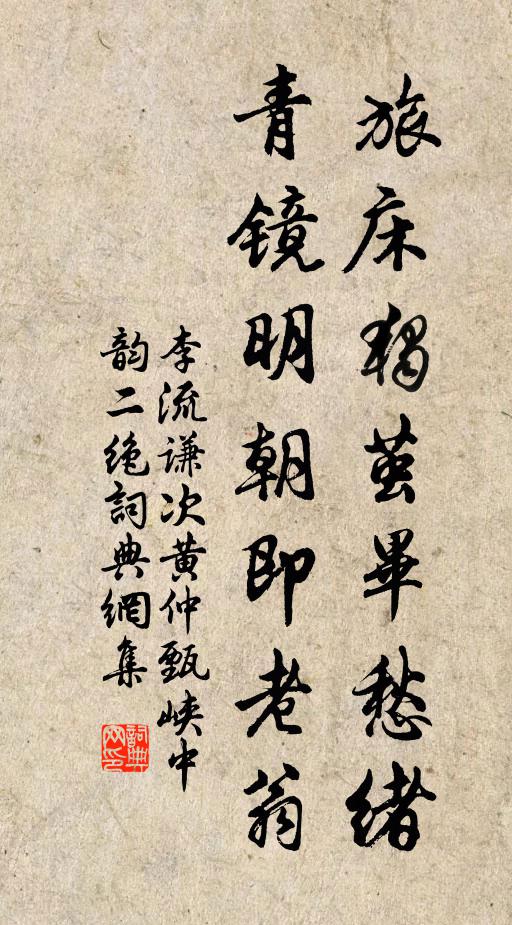 旅床独茧毕愁绪
青镜明朝即老翁
李流谦次黄仲甄峡中
韵二绝詞典網集
詞典
网印